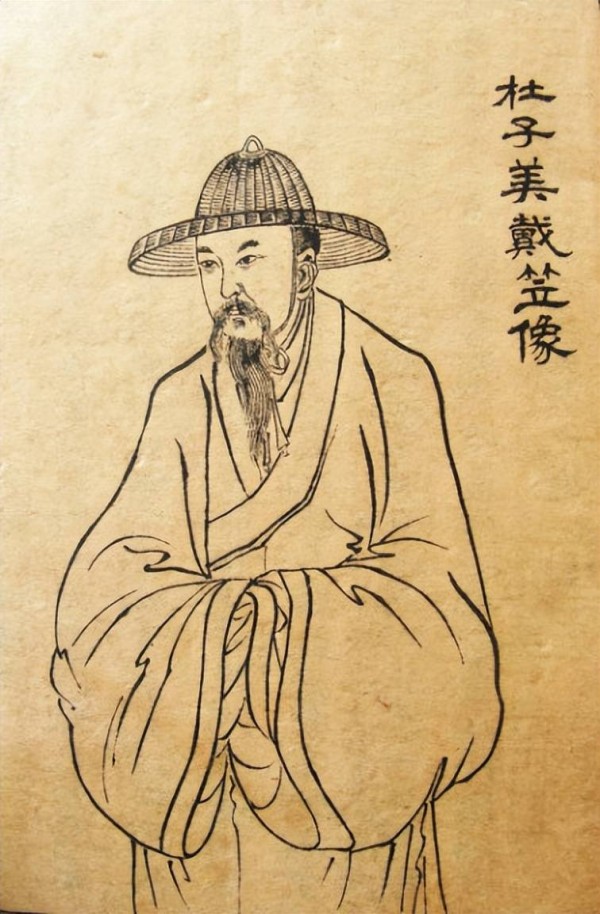 杜子美戴笠像